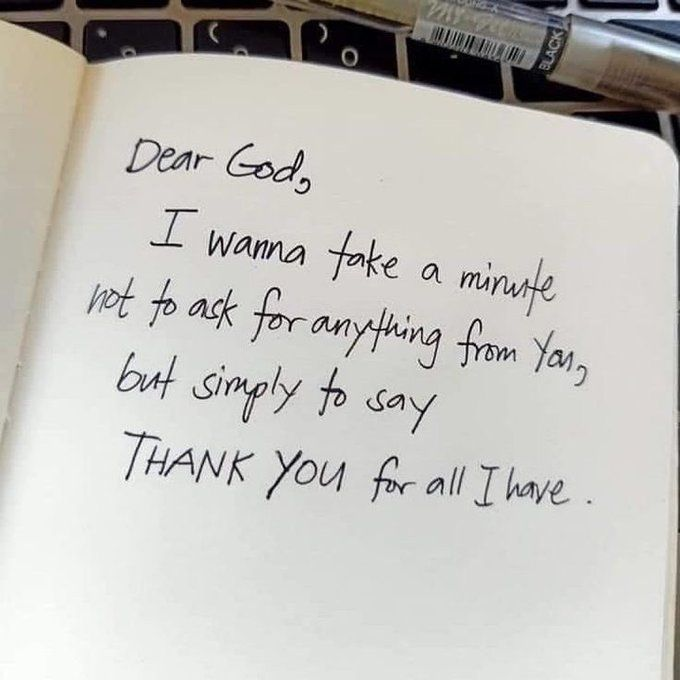 BLACK
Dear God,
I wanna take a minute
not to ask for anything from You,
but simply to say
THANK YOU for all I have.